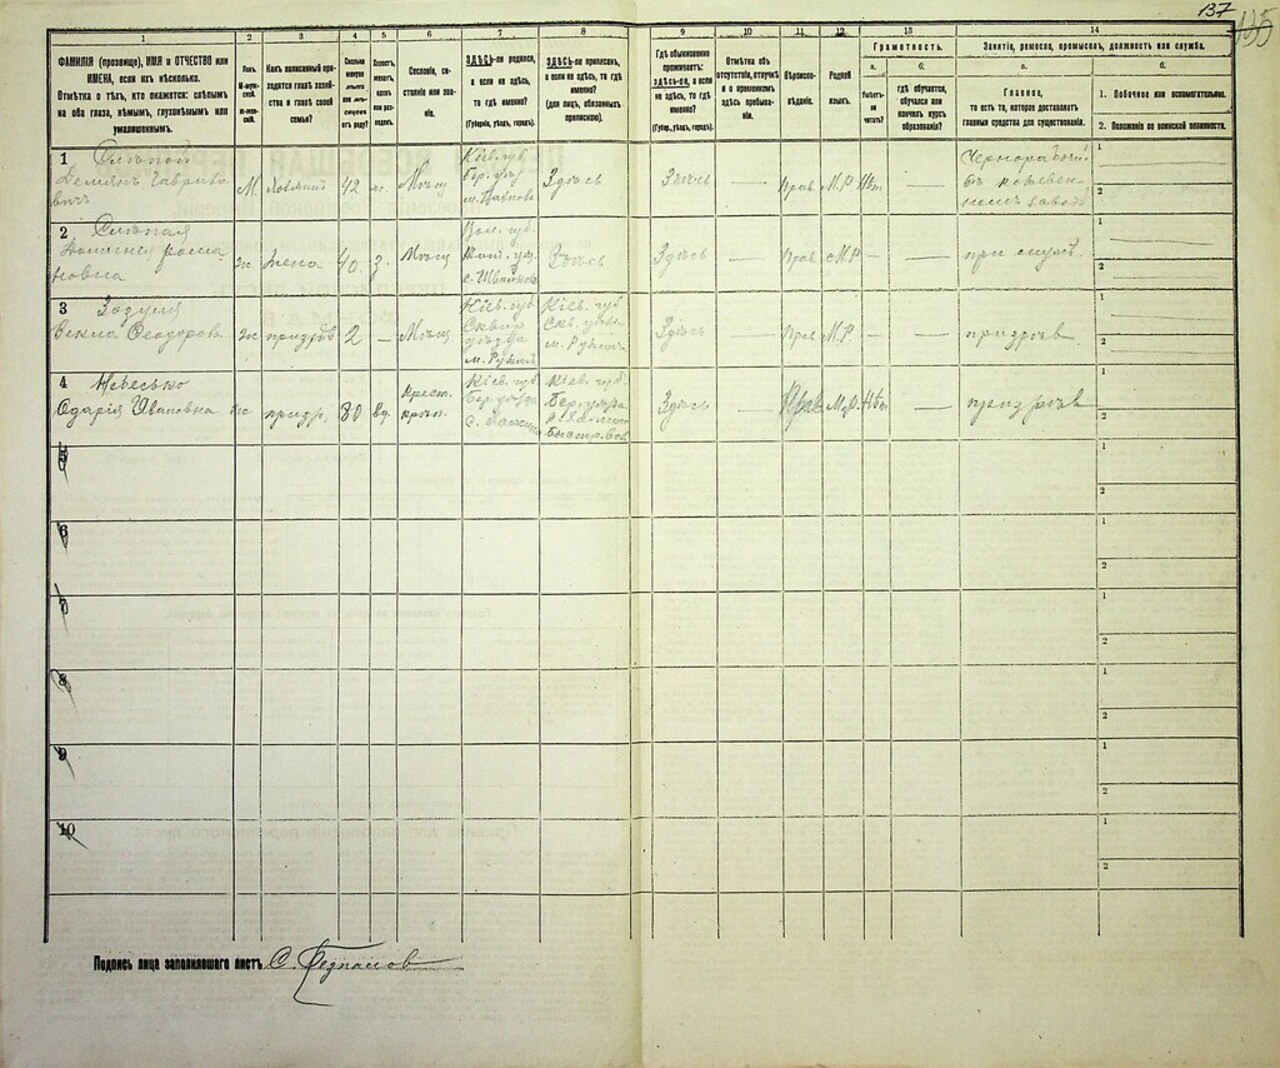 137
135
1
2
3
4
5
6
7
8
9
10
11
12
13
14
ФАМИЛІЯ (прозвище), ИМЯ и ОТЧЕСТВО или
ИМЕНА, если ихъ нѣсколько.
Отмѣтка о тѣхъ, кто окажется: слѣпымъ
на оба глаза, нѣмымъ, глухонѣмымъ или
умалишеннымъ.
Полъ.
М-мужской.
Ж-женскій.
Какъ записанный приходится
главѣ хозяйства
и главѣ своей
семьи?
Сколько
минуло
лѣтъ
или мѣсяцевъ
отъ роду?
Холостъ,
женатъ,
вдовъ
или разведенъ.
Сословіе, состояніе
или званіе.
ЗДѢСЬ-ли родился,
а если не здѣсь,
то гдѣ именно?
(Губернія, уѣздъ, городъ).
ЗДѢСЬ-ли приписанъ,
а если не здѣсь, то гдѣ
именно?
(для лицъ, обязанныхъ
припискою).
Гдѣ обыкновенно
проживаетъ:
здѣсь-ли, а если
не здѣсь, то гдѣ
именно?
(Губер., уѣздъ, городъ).
Отмѣтка объ
отсутствіи, отлучкѣ
и о временномъ
здѣсь пребываніи.
Вѣроисповѣданіе.
Родной
языкъ.
Грамотность.
а.
Умѣетъ-ли
читать?
б.
гдѣ обучается,
обучался или
кончилъ курсъ
образованія?
Занятіе, ремесло, промыселъ, должность или служба.
а.
Главное,
то есть то, которое доставляетъ
главныя средства для существованія.
б.
1. Побочное или вспомогательное.
2. Положеніе по воинской повинности.
1 Слѣпой
Демьянъ Гавриловичъ
М
42
ж.
Мѣщ
Кіев. губ.
Бер. уѣз
Здѣсь
Здѣсь
—
Прав
М.Р
Нѣт
—
Чернорабочій
въ кожевенномъ
заводѣ
1
2
2 Слѣпая
Романовна
ж.
жена
40.
з.
Мѣщ
Вол. губ.
Здѣсь
Здѣсь
—
Прав
М.Р
—
—
при мужѣ
1
2
3 Зозуля
Текла Феодорова
ж
2
—
Мѣщ
Кіев. губ
Сквир
уѣзда
м. Ружинъ
Кіев. губ
Скв. уѣзд.
м. Ружинъ
Здѣсь
—
Прав
М.Р.
—
—
призрѣв
1
2
4
Одарія Ивановна
ж
призр.
80
вд.
Крест.
Кіев. губ
Бер уѣзда
Кіев. губ.
Бер. уѣзда
Здѣсь
—
Прав
М.Р.
Нѣт
—
призрѣв
1
2
5
1
2
6
1
2
7
1
2
8
1
2
9
1
2
10
1
2
Подпись лица заполнявшаго листъ С.